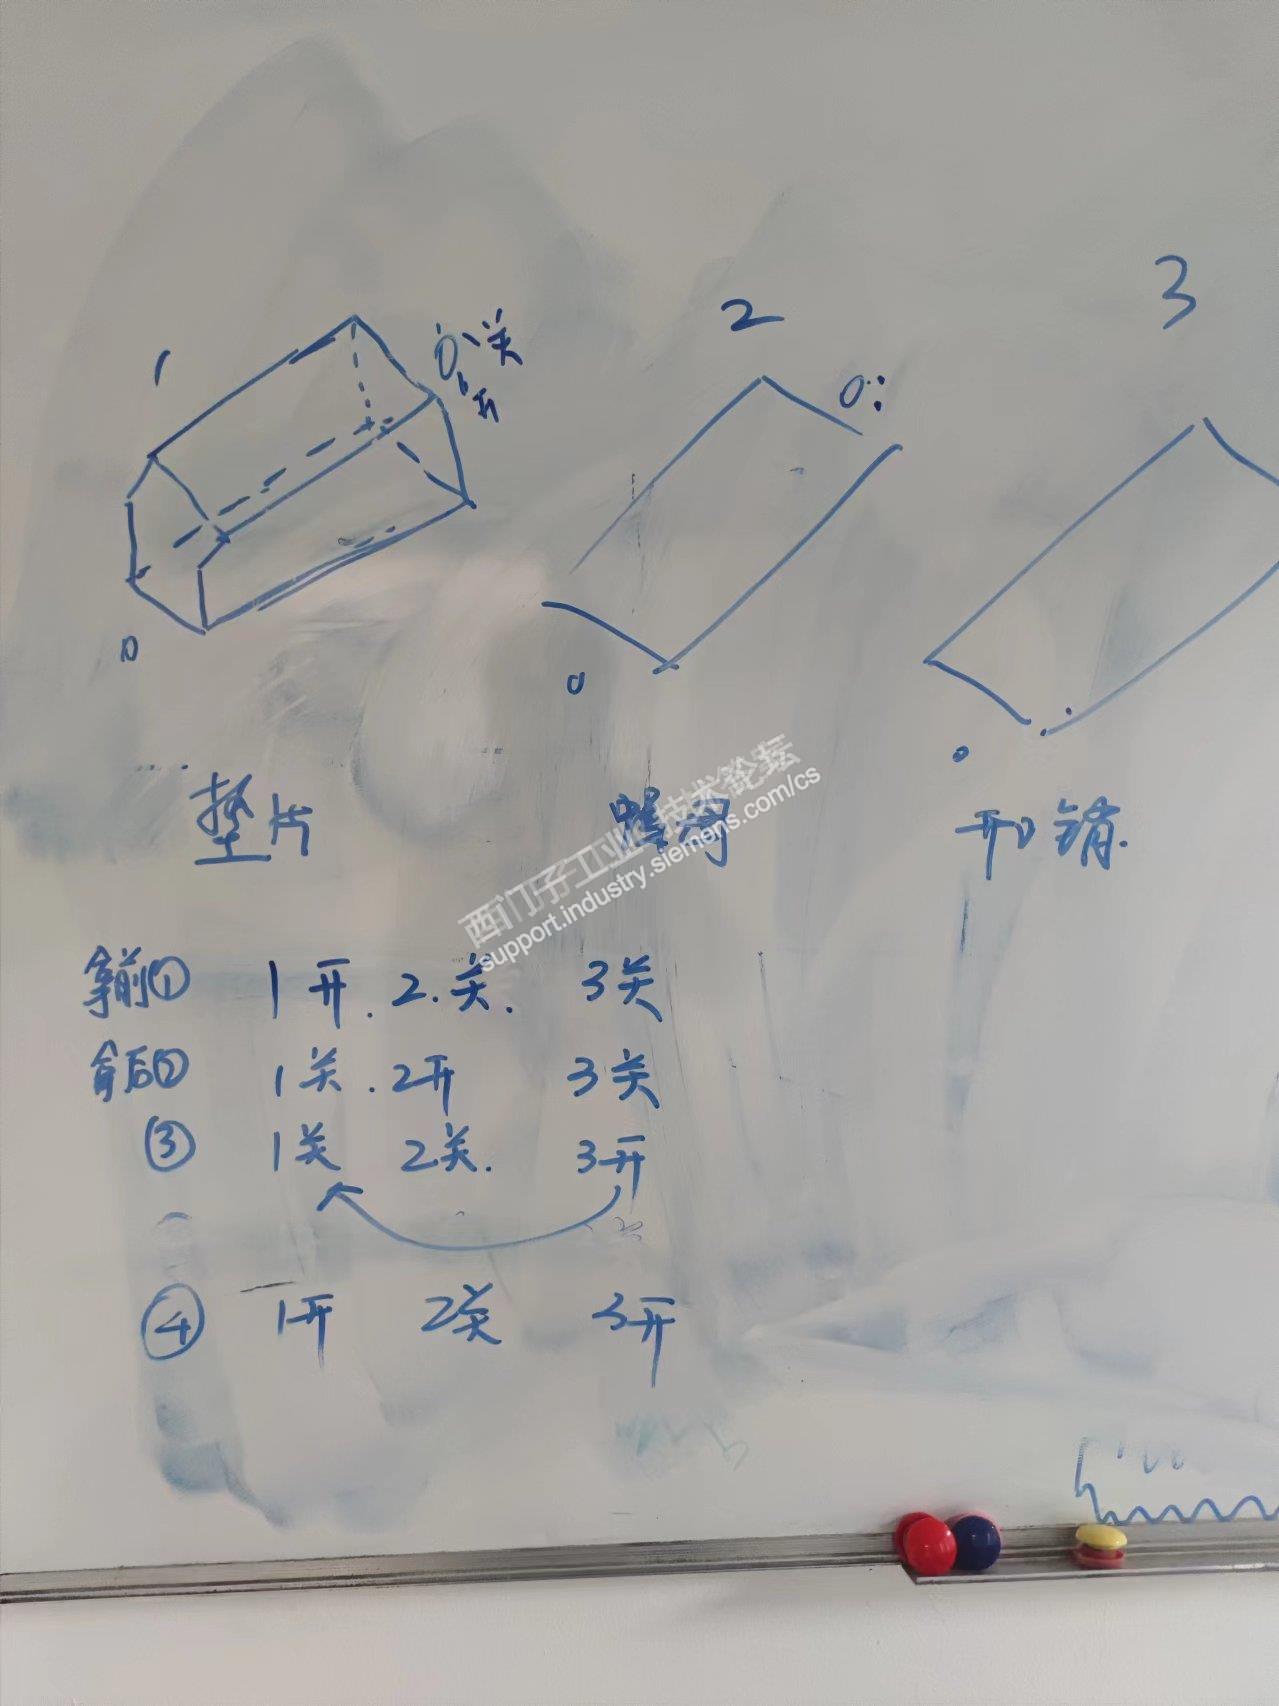 1
2
3
0 关
开
0
0
0
0
垫片
螺母
开口销.
西门子工业 技术论坛
support.industry.siemens.com/cs
拿前① 1开. 2.关. 3关
拿后② 1关. 2开 3关
③ 1关 2关. 3开
④ 1开 2关 3开